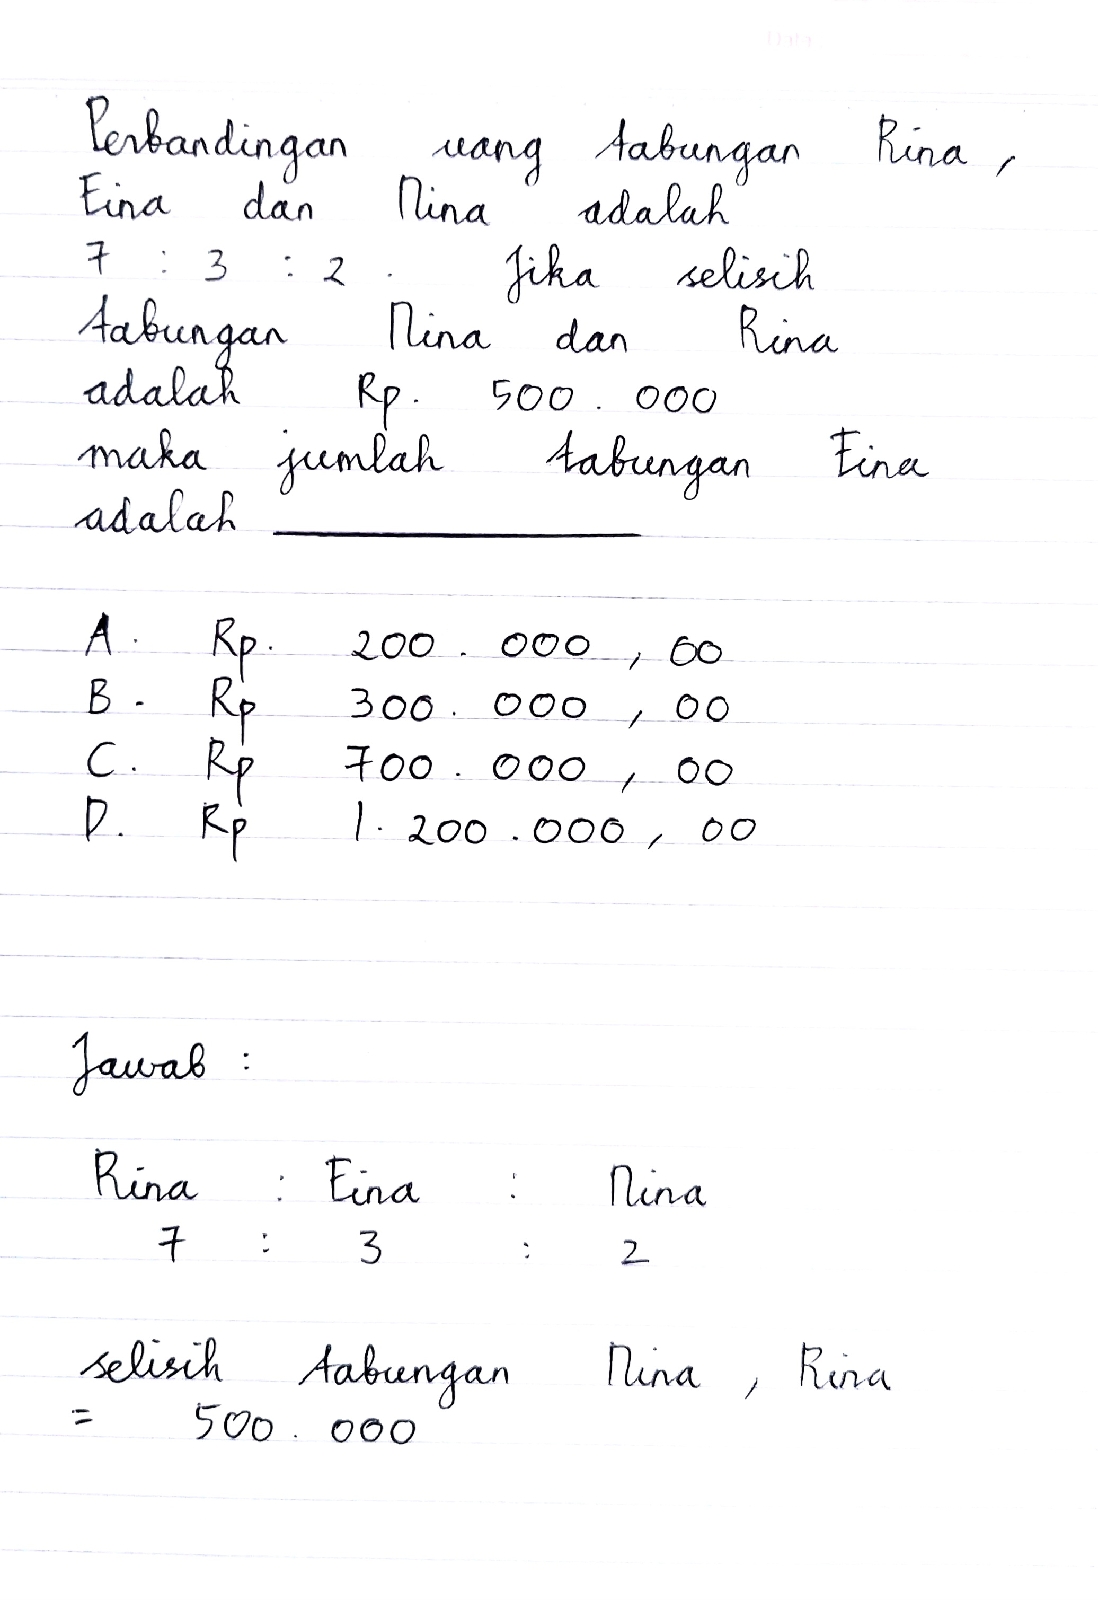 Perbandingan uang tabungan Rina,
Eina dan Nina adalah
7 : 3 : 2. Jika selisih
tabungan Nina dan Rina
adalah Rp. 500.000
maka jumlah tabungan Eina
adalah ____________
A. Rp. 200.000,00
B. Rp 300.000,00
C. Rp 700.000,00
D. Rp 1.200.000,00
Jawab :
Rina : Eina : Nina
7 : 3 : 2
selisih tabungan Nina, Rina
= 500.000